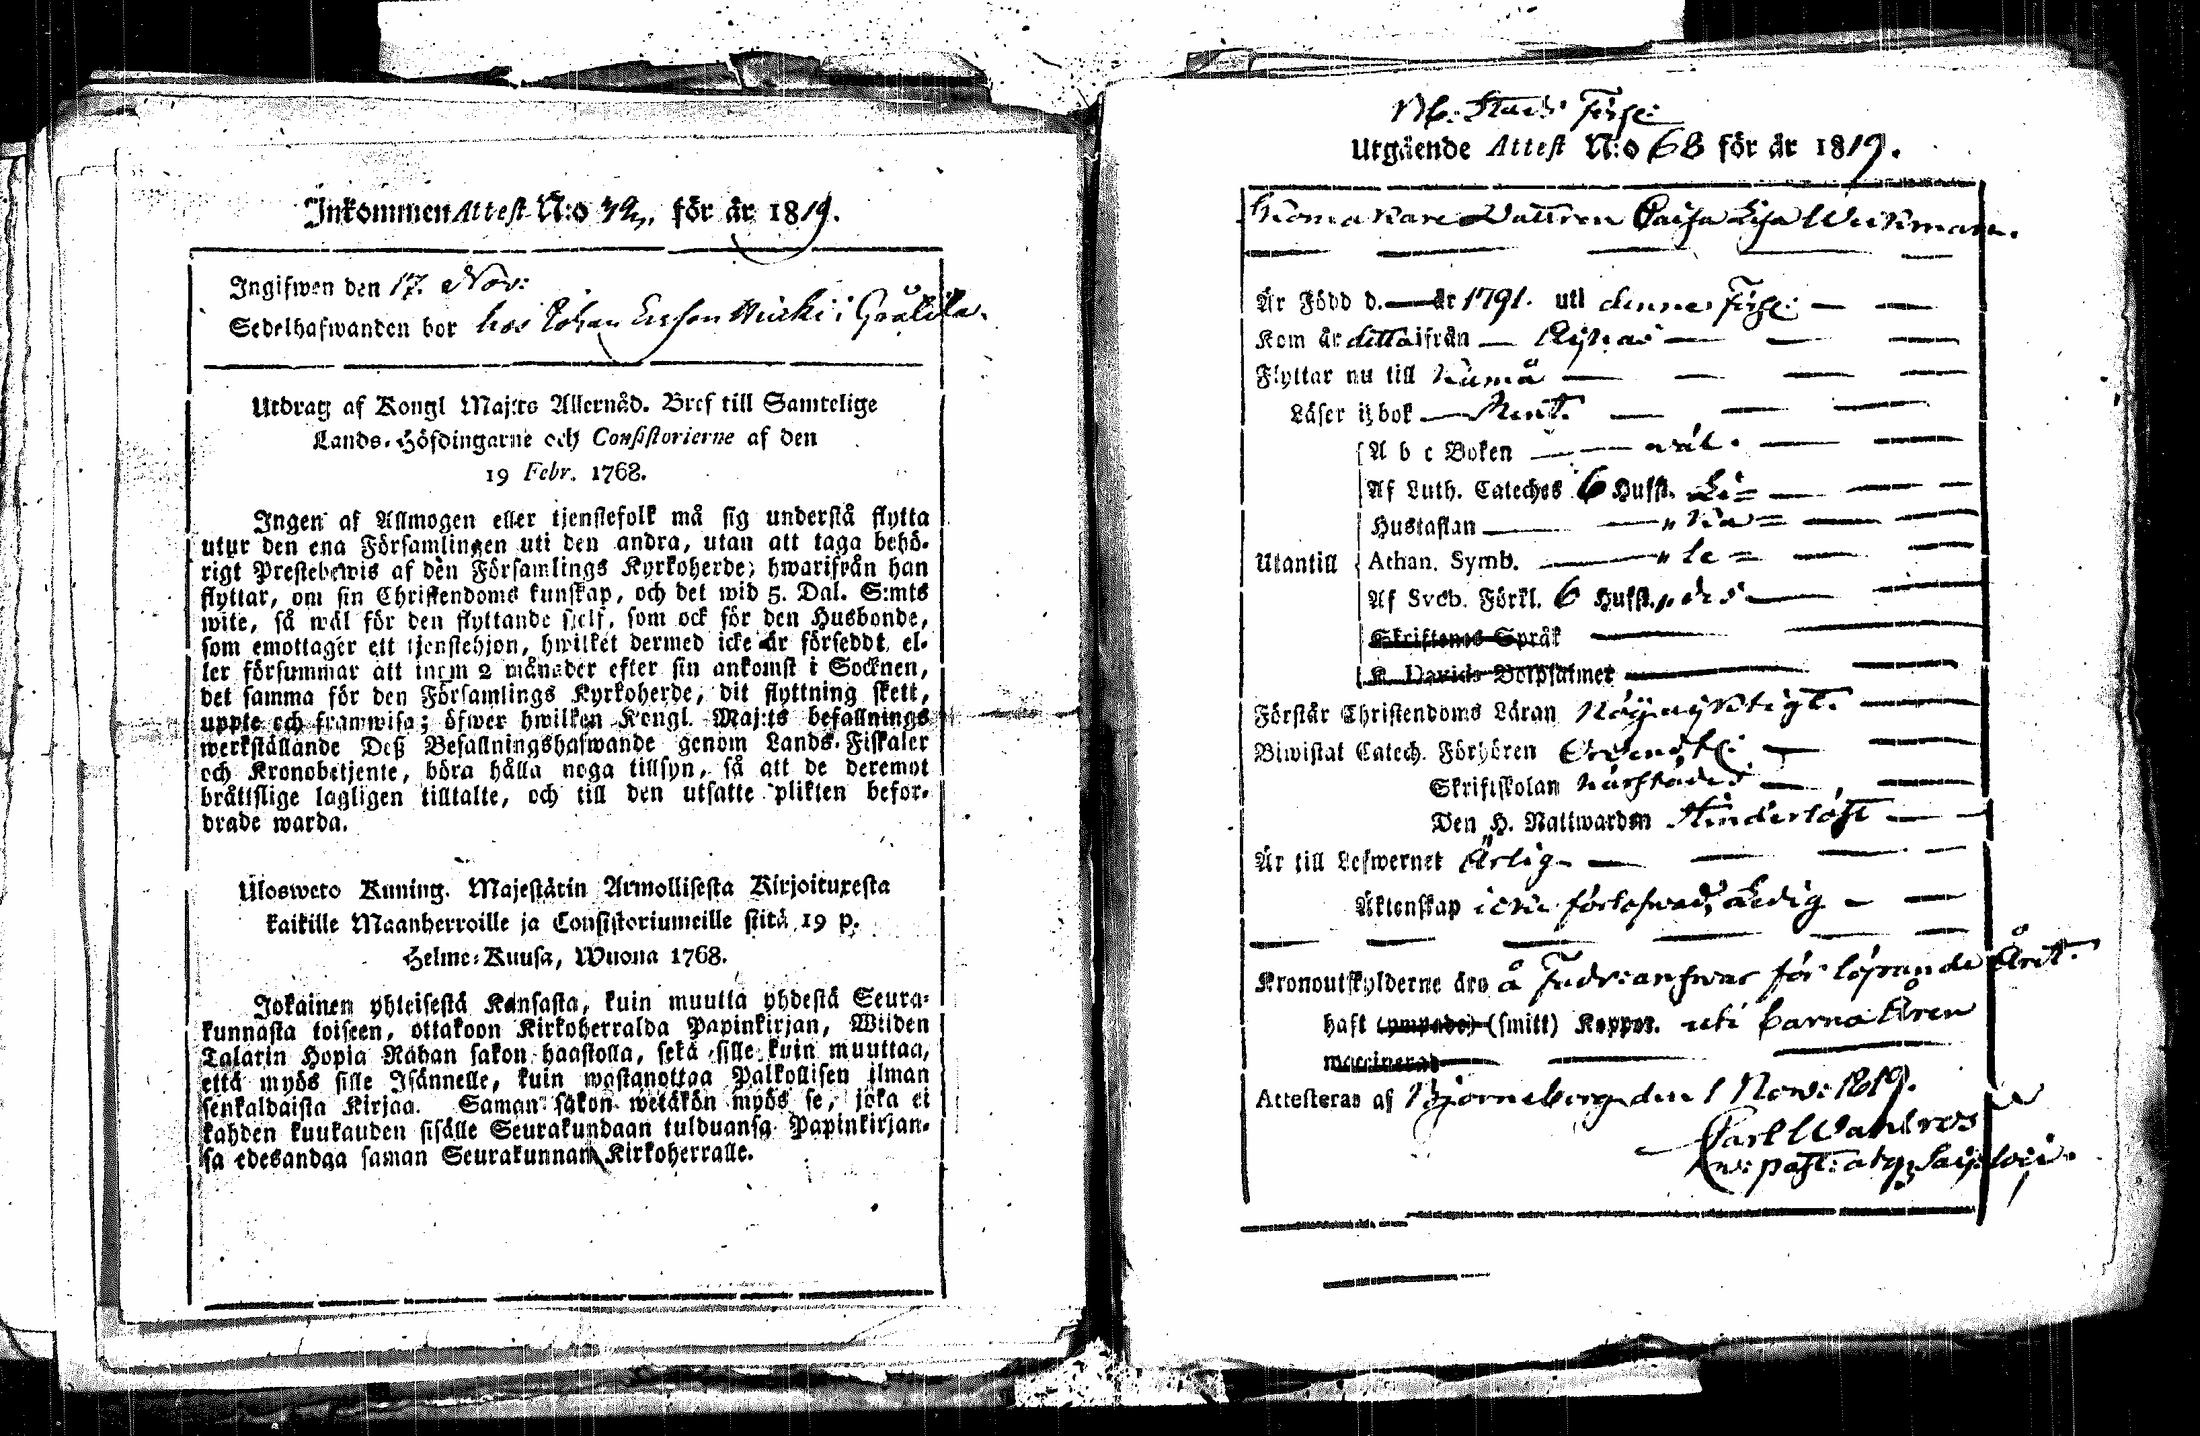 Inkommen Attest N:o 72, för år 1819.
Ingifwen den 17. Nov:
Sedelhafwanden bor hos Johan Ersson i Gråtila.
Utdrag af Kongl Maj:ts Allernåd. Bref till Samtelige
Lands-Höfdingarne och Consistorierne af den
19 Febr. 1768.
Ingen af Allmogen eller tjenstefolk må sig understå flytta
utur den ena Församlingen uti den andra, utan att taga behö-
rigt Prestebewis af den Församlings Kyrkoherde, hwarifrån han
flyttar, om sin Christendoms kunskap, och det wid 5. Dal. S:mts
wite, så wäl för den flyttande sielf, som ock för den Husbonde,
som emottager ett tjenstehjon, hwilket dermed icke är försedt, el-
ler försummar att inom 2 månader efter sin ankomst i Socknen,
det samma för den Församlings Kyrkoherde, dit flyttning skett,
uppte och framwisa; öfwer hwilken Kongl. Maj:ts befallnings
werkställande Deß Befallningshafwande genom Lands-Fiskaler
och Kronobetjente, böra hålla noga tillsyn, så att de deremot
bråttslige lagligen tilltalte, och till den utsatte plikten befor-
drade warda.
Ulosweto Kuning. Majestätin Armollisesta Kirjoituxesta
kaikille Maanherroille ja Consistoriumeille siitä 19 p.
Helme-Kuusa, Wuona 1768.
Jokainen yhteisestä Kansasta, kuin muutta yhdestä Seura-
kunnasta toiseen, ottakoon Kirkoherralda Papinkirjan, Wiiden
Talarin Hopia Rahan sakon haastolla, sekä sille kuin muuttaa,
että myös sille Isännelle, kuin wastanottaa Palkollisen ilman
senkaldaista Kirjaa. Saman sakon wetäkön myös se, joka ei
kahden kuukauden sisälle Seurakundaan tulduansa Papinkirjan-
sa edesandaa saman Seurakunnan Kirkoherralle.
Stads Förs:
Utgående Attest N:o 68 för år 1819.
Skomakare Dottren Caisa Lisa Weckman.
Är Född d. — år 1791. uti denne Förs: —
Kom år ditto ifrån —
Flyttar nu till Kumå —
Läser i bok — Rent. —
A b c Boken — wäl. —
Af Luth. Cateches 6 Hufst. —
Hustaflan —
Utantill Athan. Symb. —
Af Sveb. Förkl. 6 Hufst. —
Skriftenes Språk —
K. Davids Botpsalmer —
Förstår Christendoms Läran Nöjaktigt. —
Biwistat Catech. Förhören Ordentl: —
Skriftskolan —
Den H. Nattwarden Hinderlöst —
Är till Lefwernet Ärlig —
Äktenskap icke förlofwad, Ledig —
Kronoutskylderne äro å Fadr: answar för löpande Året.
haft (ympade) (smitt) Koppor. uti barna Åren
vaccinerad —
Attesteras af Björneborg den 1 Nov: 1819.
Carl